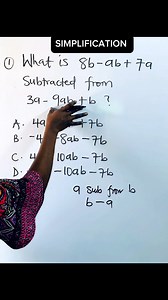 SIMPLIFICATION
① What is 8b - ab + 7a
Subtracted from
3a - 9ab + b ?
A. 4a 7b
B. -4 8ab - 7b
C. 4 10ab - 7b
D. -10ab - 7b
a sub from b
b - a